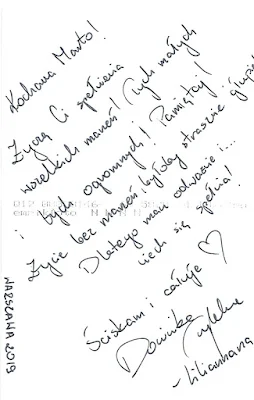 Kochana Marto!
Życzę Ci spełnienia
wszelkich marzeń! Tych małych
i tych ogromnych! Pamiętaj!
Życie bez marzeń byłoby strasznie głupie!
Dlatego marz odważnie i...
niech się spełnia!
Ściskam i całuję ♡
Dominika
-Lilianhana
WARSZAWA 2019